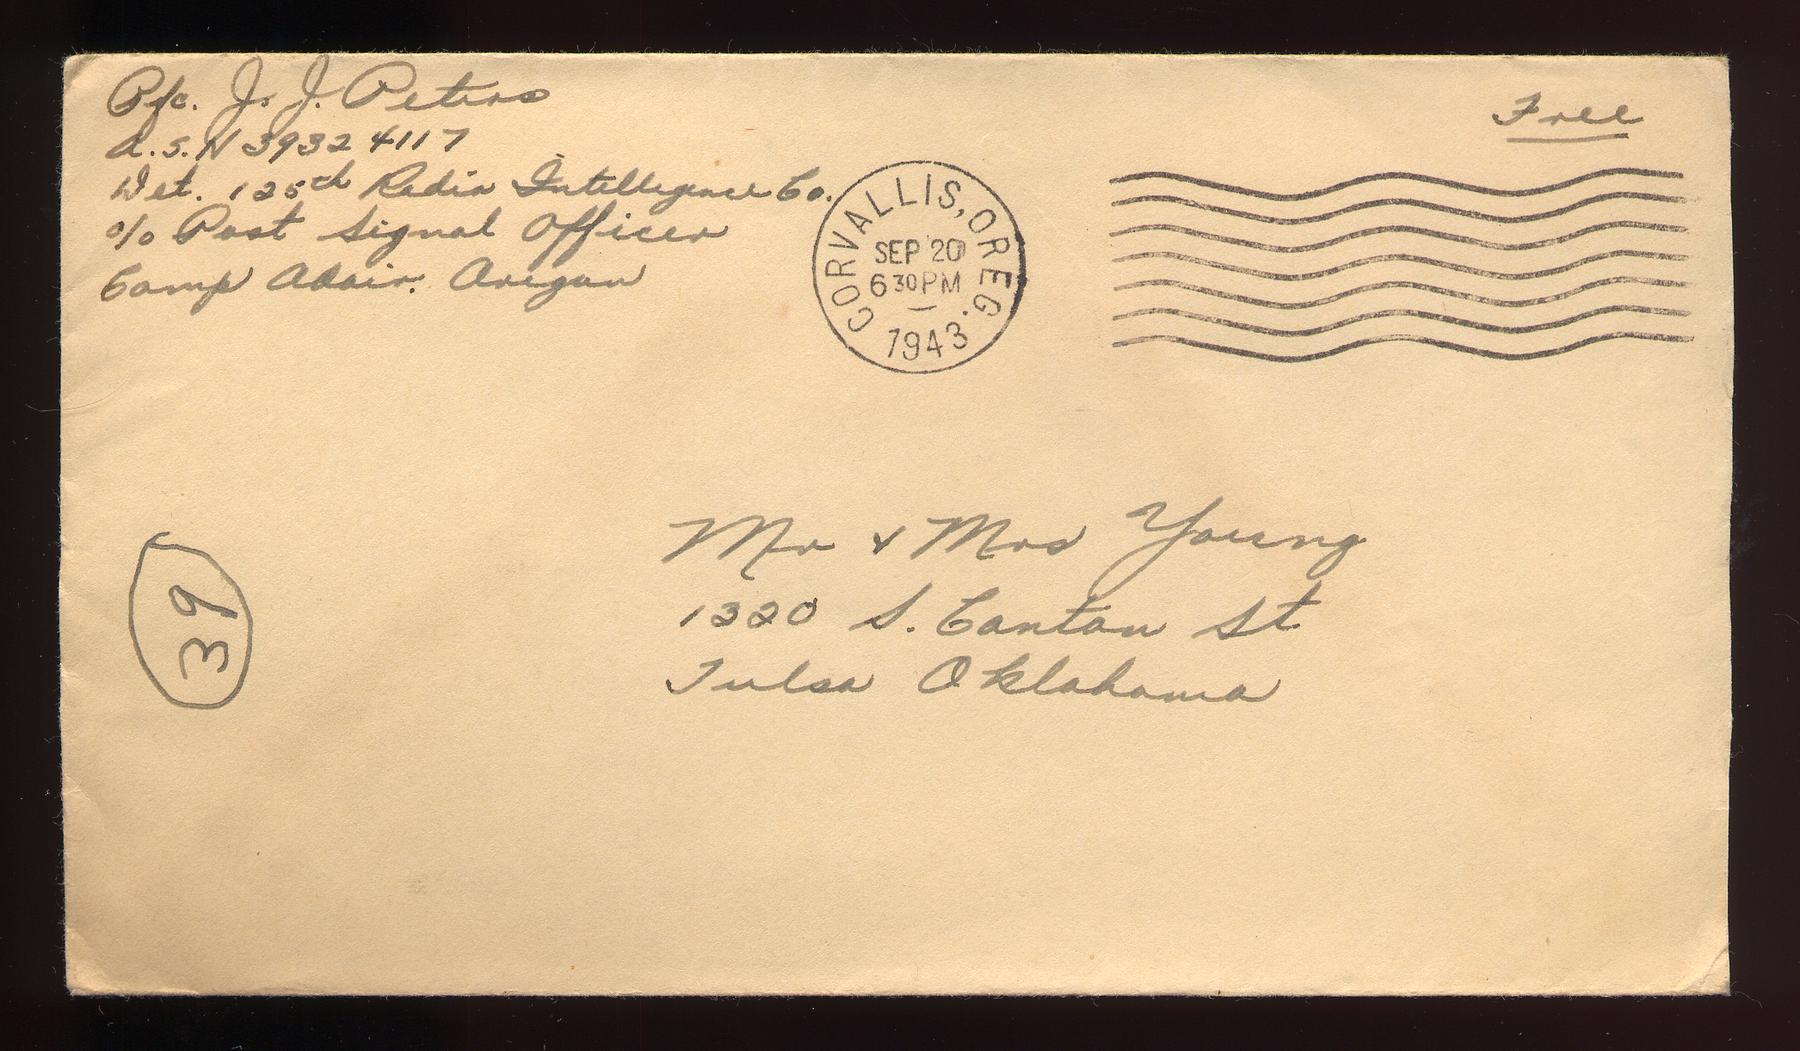 Pfc. J. J. Peters
A.S.N 39324117
Det. 125th Radio Intelligence Co.
c/o Post Signal Officer
Camp Adair. Oregon
Free
CORVALLIS, OREG.
SEP 20
630PM
1943
Mr & Mrs Young
1320 S. Canton St.
Tulsa Oklahoma
39